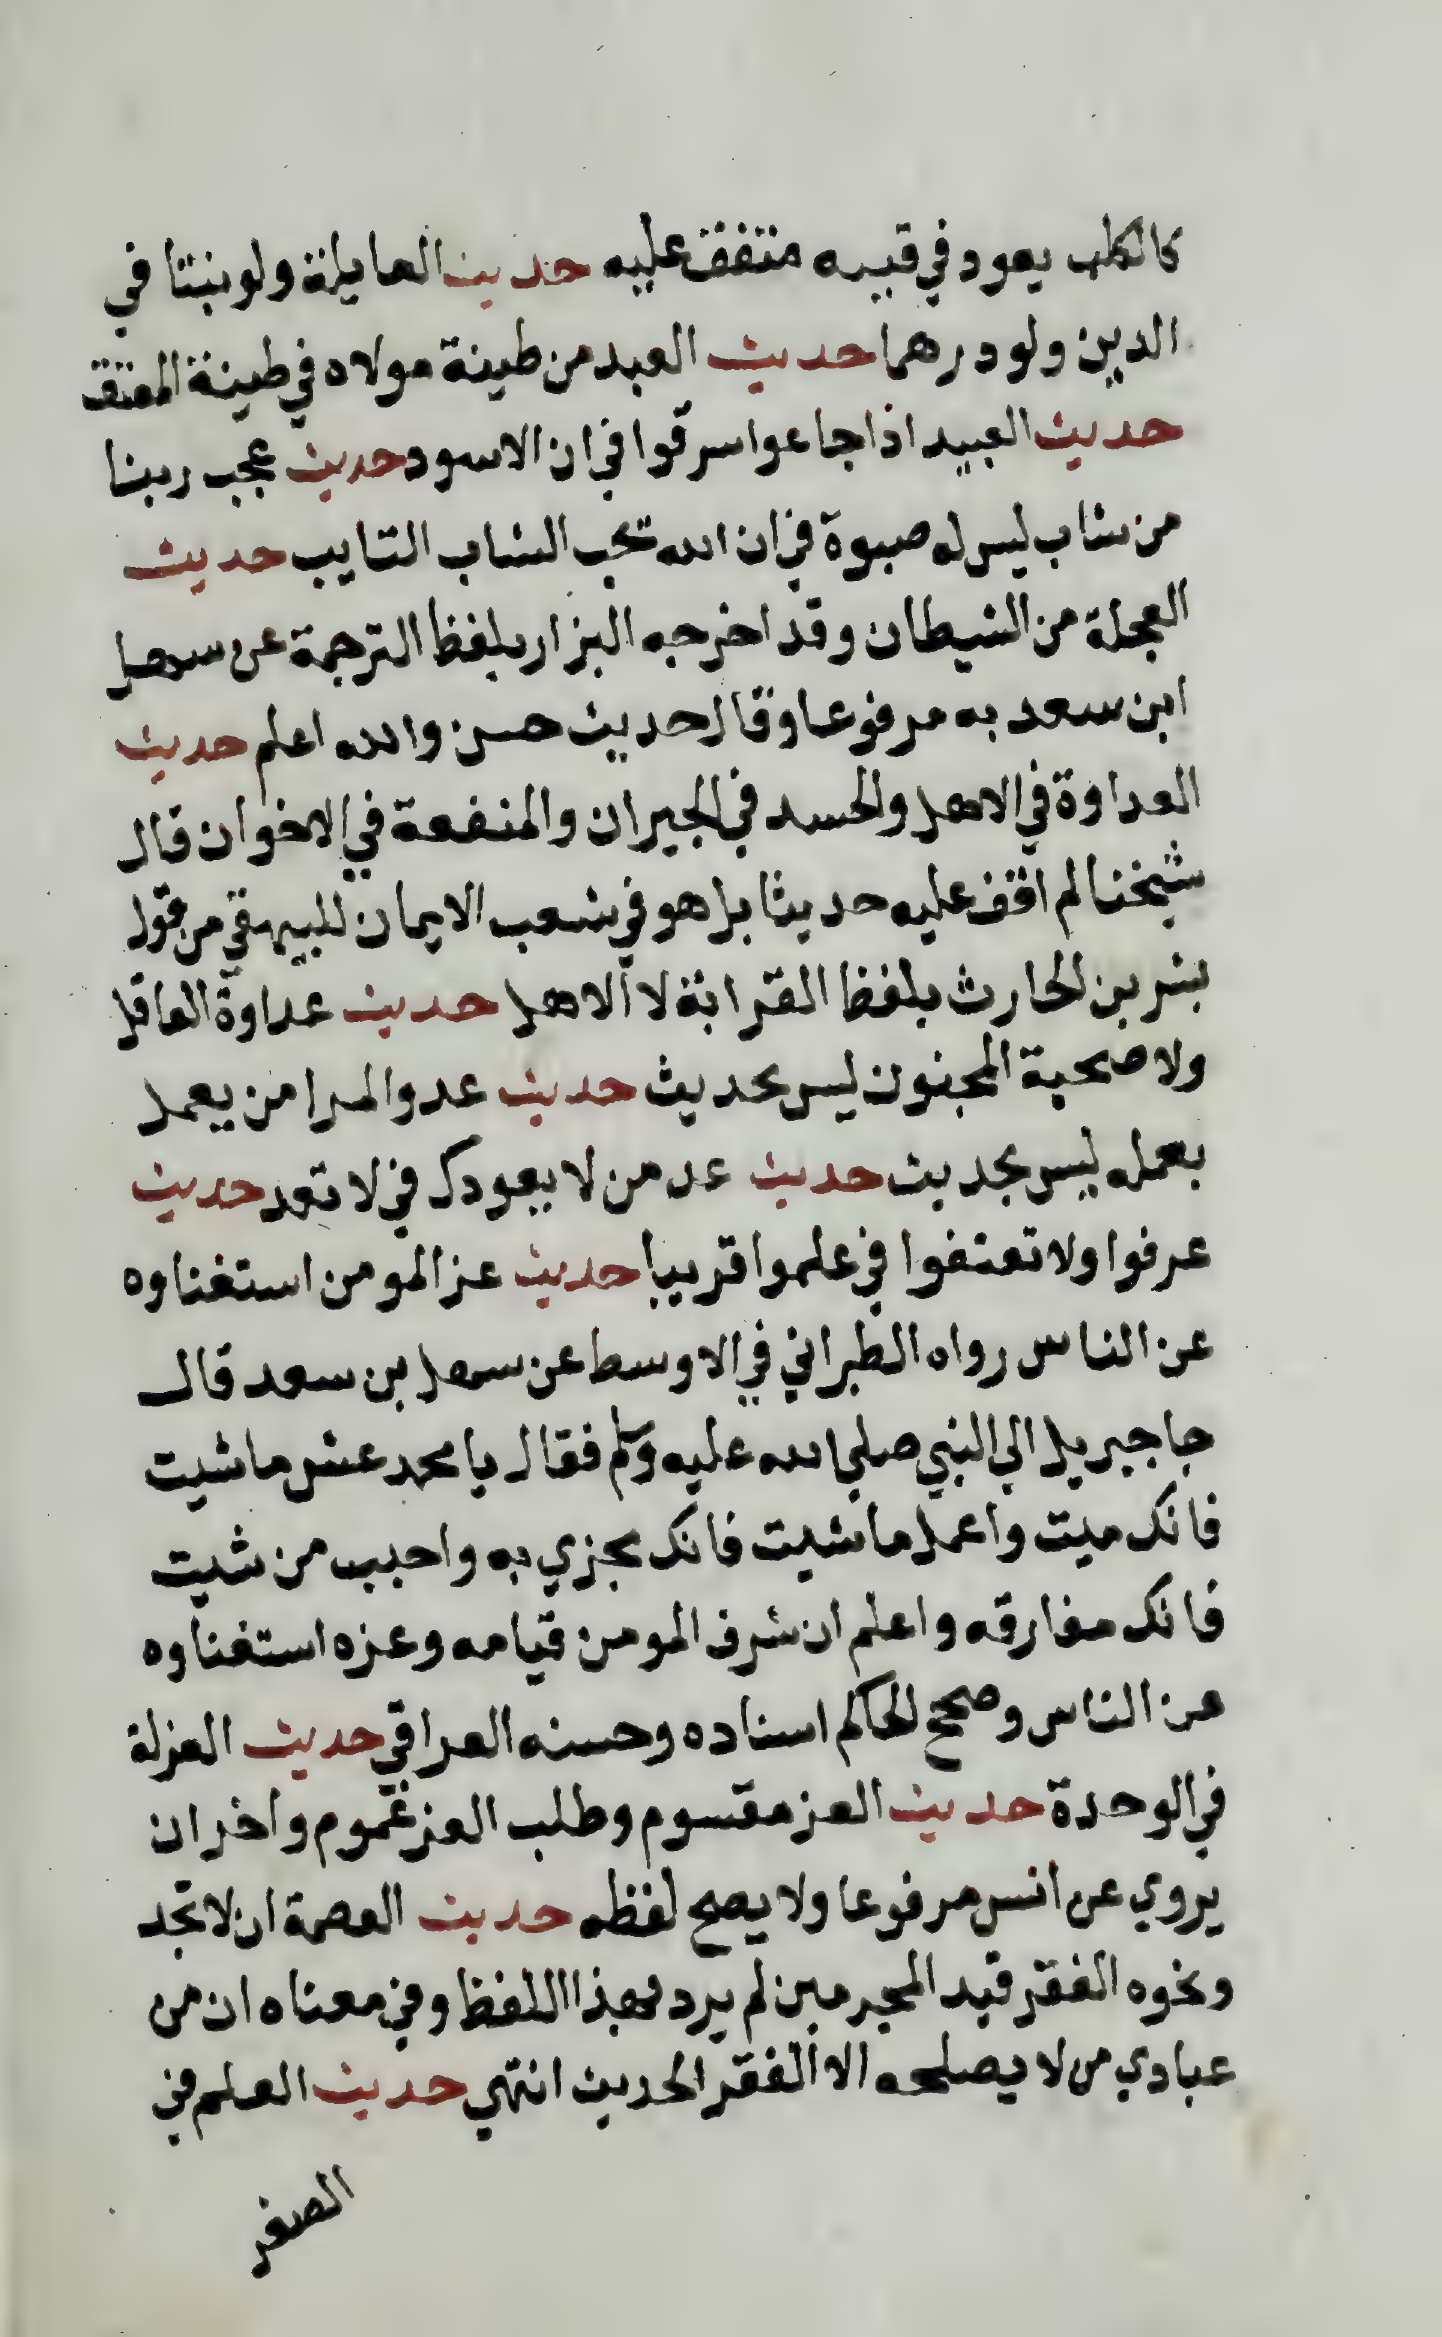 كالكلب يعود في قييه متفق عليه حديث العايلة ولو بنتا في
الدين ولو درهما حديث العبد من طينة مولاه في طينة المعتق
حديث العبيد اذا جاعوا سرقوا في ان الاسود حديث عجب ربنا
من شاب ليس له صبوة في ان الله يحب الشاب التايب حديث
العجلة من الشيطان وقد اخرجه البزار بلفظ الترجمة عن سهل
ابن سعد به مرفوعا وقال حديث حسن والله اعلم حديث
العداوة في الاهل والحسد في الجيران والمنفعة في الاخوان قال
شيخنا لم اقف عليه حديثا بل هو في شعب الايمان للبيهقي من قول
بشر بن الحارث بلفظ القرابة لا الاهل حديث عداوة العاقل
ولا صحبة المجنون ليس بحديث حديث عدو المرا من يعمل
بعمله ليس بحديث حديث عد من لا يعودك في لا تعد حديث
عرفوا ولا تعنفوا في علموا قريبا حديث عز المومن استغناوه
عن الناس رواه الطبراني في الاوسط عن سهل بن سعد قال
جا جبريل الي النبي صلي الله عليه وسلم فقال يا محمد عش ما شيت
فانك ميت واعمل ما شيت فانك مجزي به واحبب من شيت
فانك مفارقه واعلم ان شرف المومن قيامه وعزه استغناوه
عن الناس وصحح الحاكم اسناده وحسنه العراقي حديث العزلة
في الوحدة حديث العز مقسوم وطلب العز غموم واخران
يروي عن انس مرفوعا ولا يصح لفظه حديث العصمة ان لا تجد
ونحوه الفقر قيد المجرمين لم يرد بهذا اللفظ وفي معناه ان من
عبادي من لا يصلحه الا الفقر الحديث انتهي حديث العلم في
الصغر